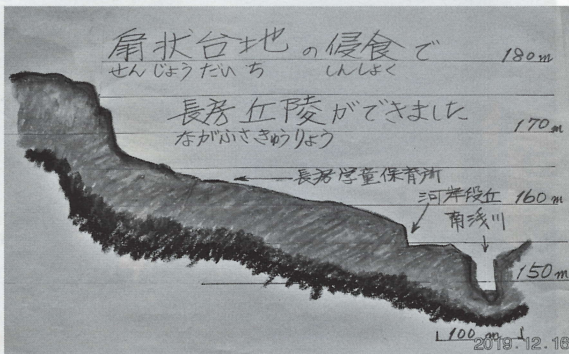 扇状台地の侵食で
せんじょうだいち しんしょく
180m
長房丘陵ができました
ながふさきゅうりょう
170m
長房学童保育所
河岸段丘
160m
南浅川
150m
100m
2019.12.16